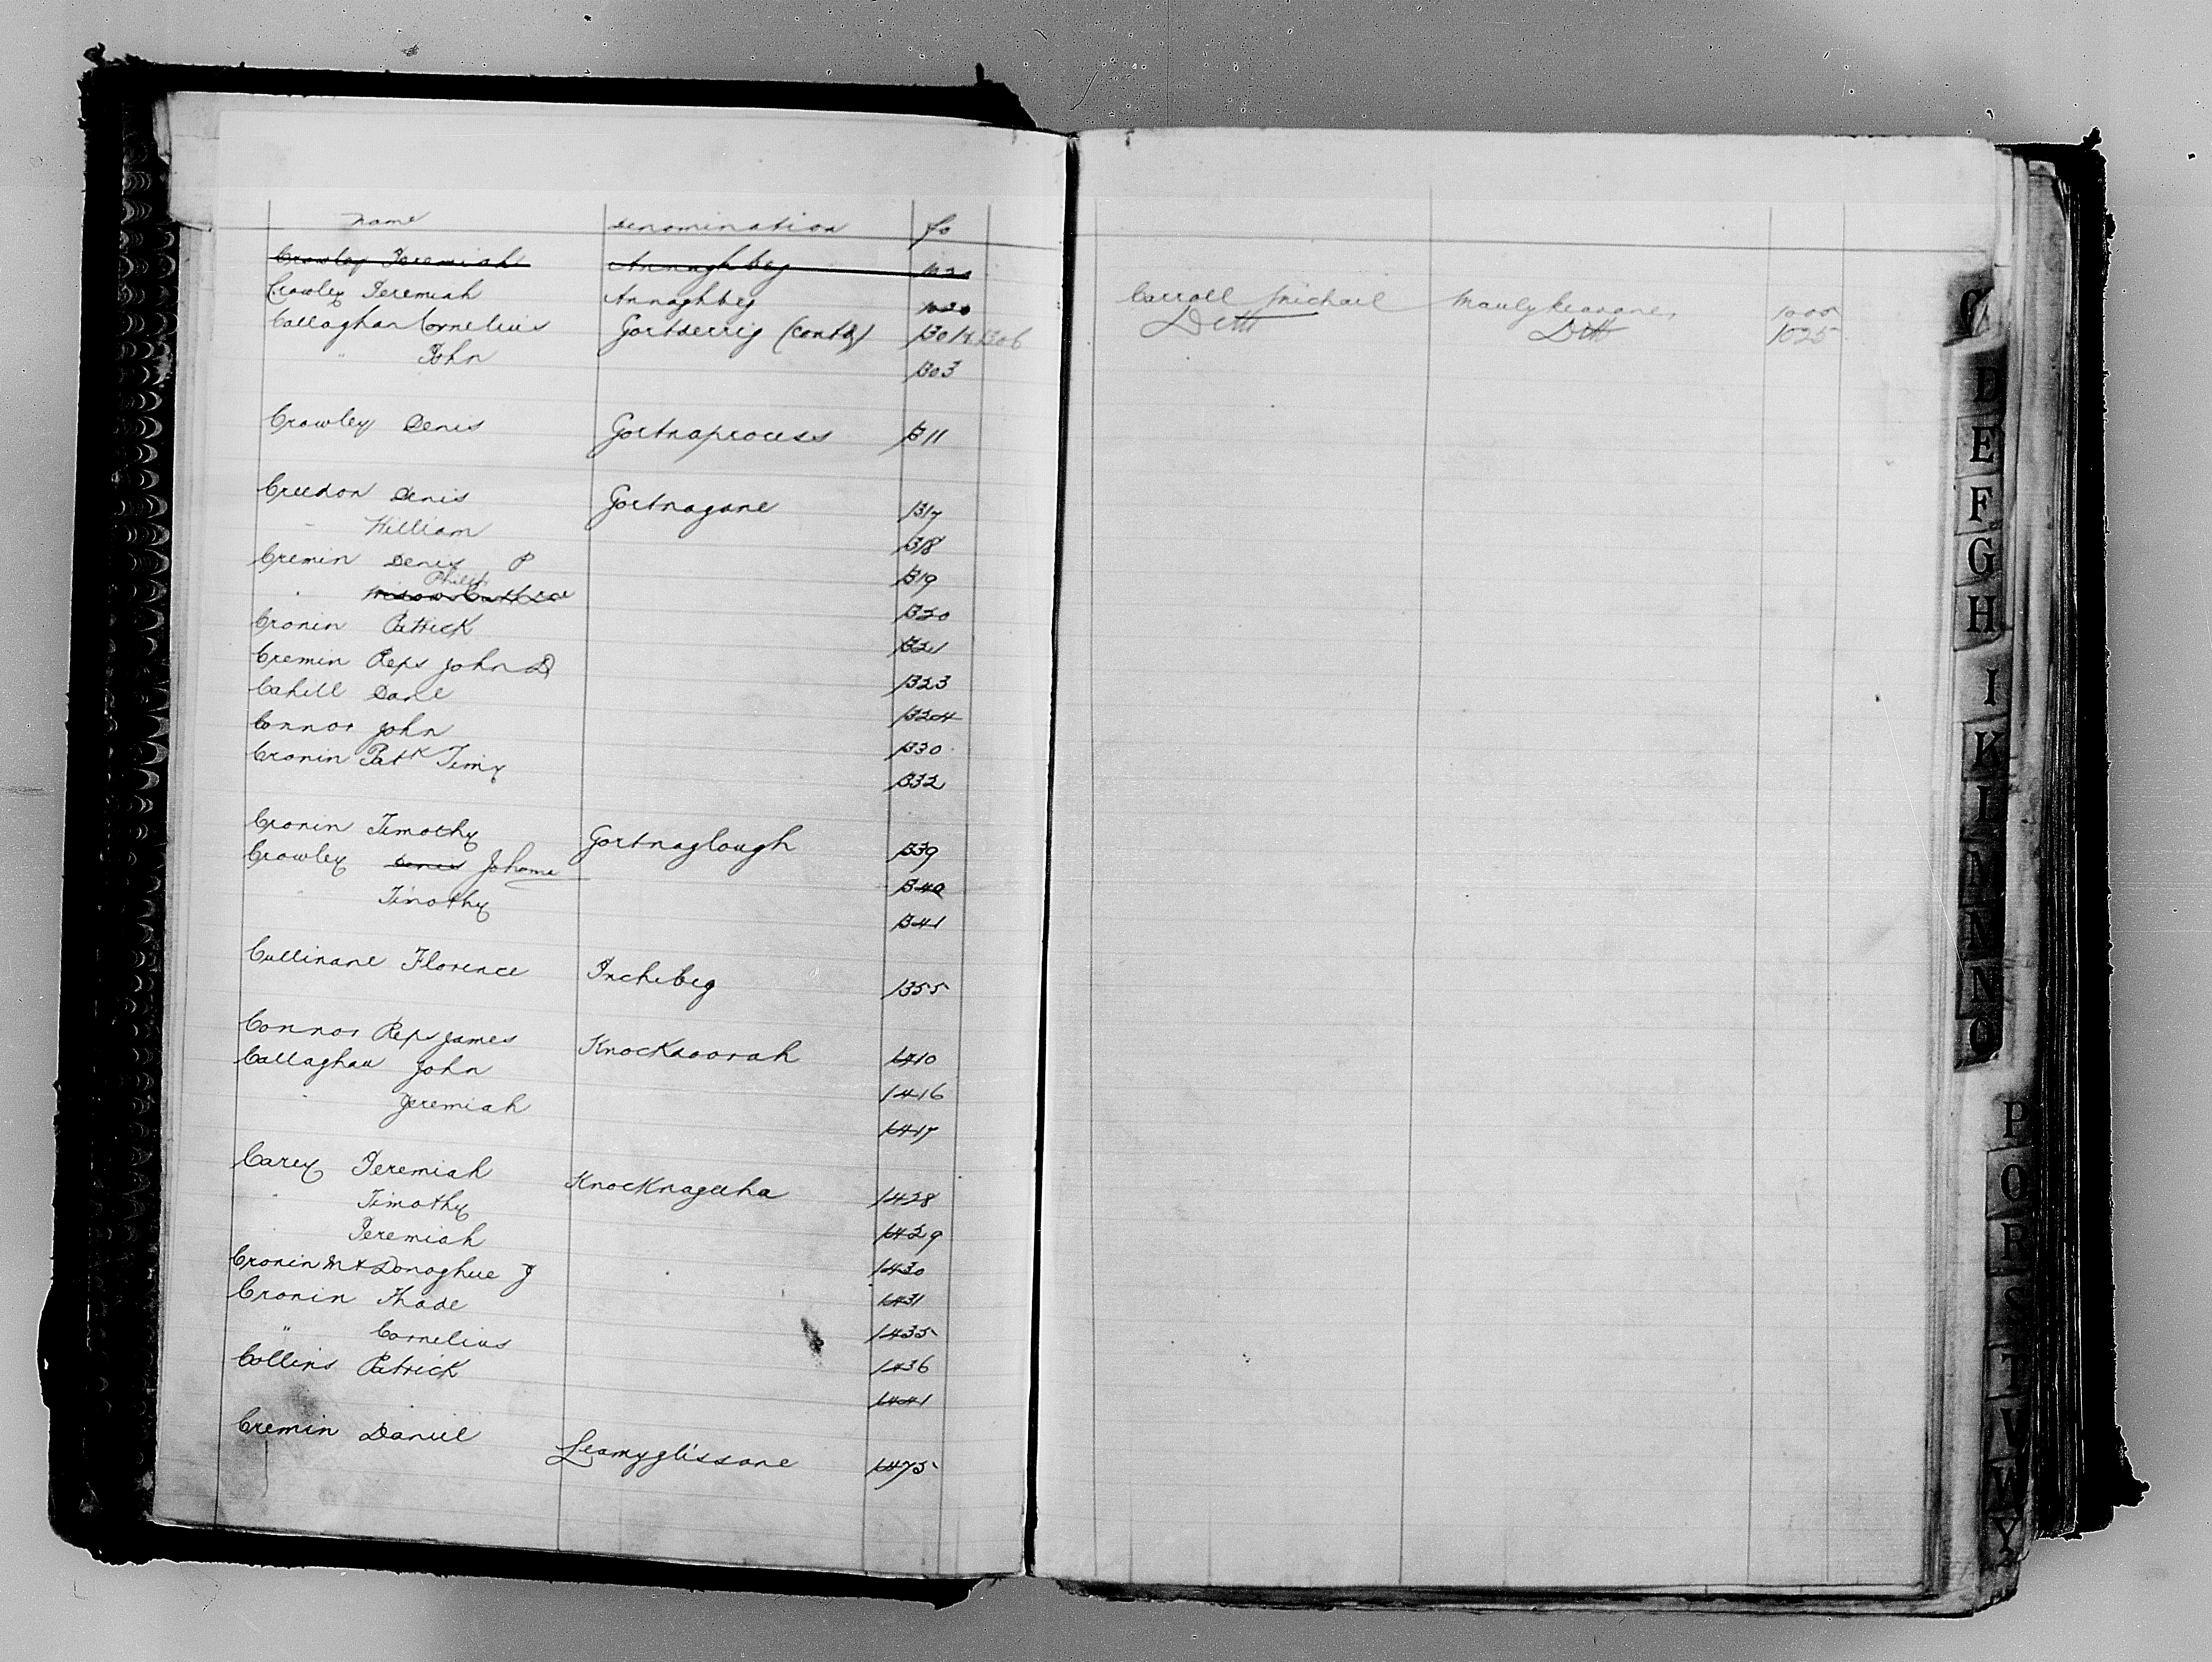 name denomination fo
Crowley Jeremiah Annaghbeg 1020
Crowley Jeremiah Annaghbeg 1020
Callaghan Cornelius Gortderrig (contd) 1301 & 1306
" John 1303
Crowley Denis Gortnaprocess 1311
Creedon Denis Gortnagane 1317
" William 1318
Cremin Denis P 1319
Philip
" Widow 1320
Cronin Patrick 1321
Cremin Reps John D 1323
Cahill Danl 1324
Connor John 1330
Cronin Patk Timy 1332
Cronin Timothy Gortnaglough 1339
Crowley Denis Johanna 1340
Timothy 1341
Cullinane Florence Inchebeg 1355
Connor Reps James Knockdoorah 1410
Callaghan John 1416
" Jeremiah 1417
Carey Jeremiah Knocknageeha 1428
" Timothy 1429
Jeremiah 1430
Cronin M & Donoghue J 1431
Cronin Thade 1435
" Cornelius 1436
Collins Patrick 1441
Cremin Daniel Leamyglissane 1475
Carroll Michael 1000
Ditto Ditto 1025
C
D
E
F
G
H
I
K
L
M
N
O
P
Q
R
S
T
V
W
Y